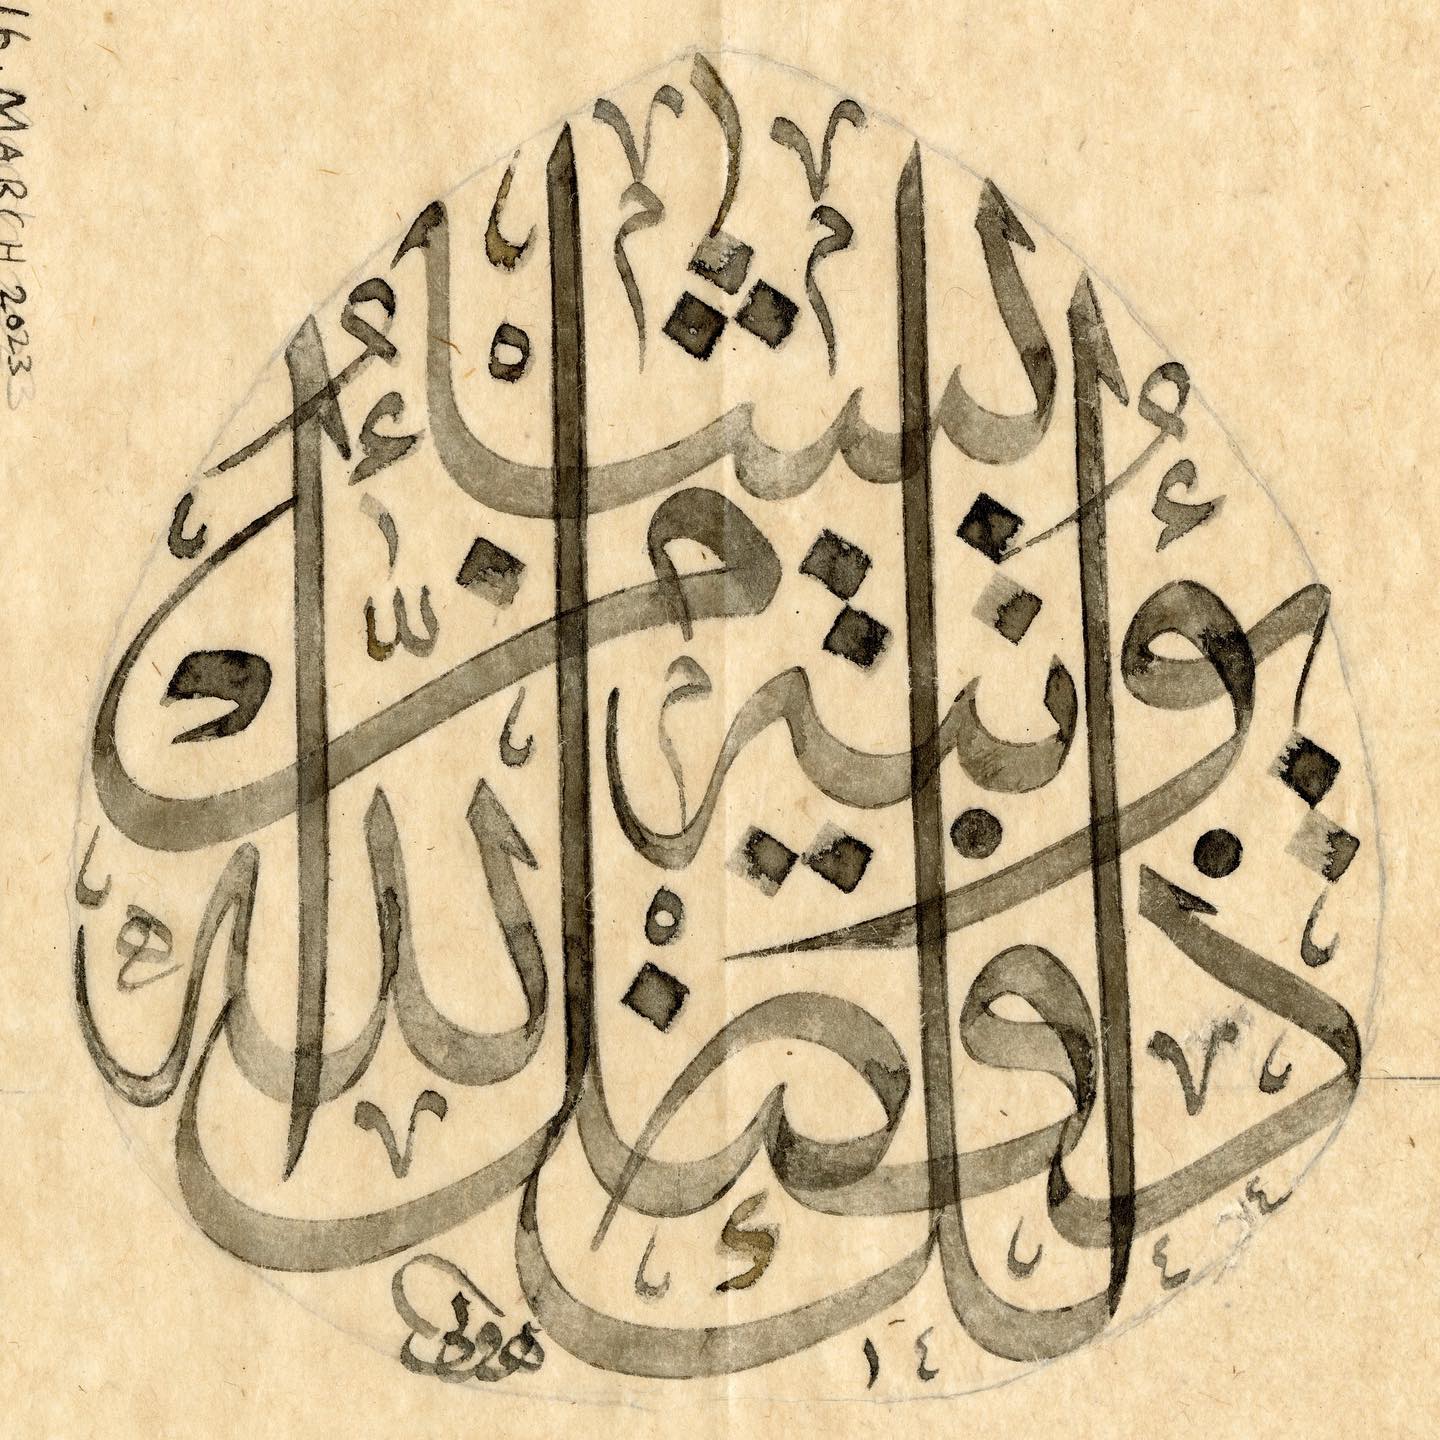 16. MARCH 2023
ذلك فضل الله يؤتيه من يشاء